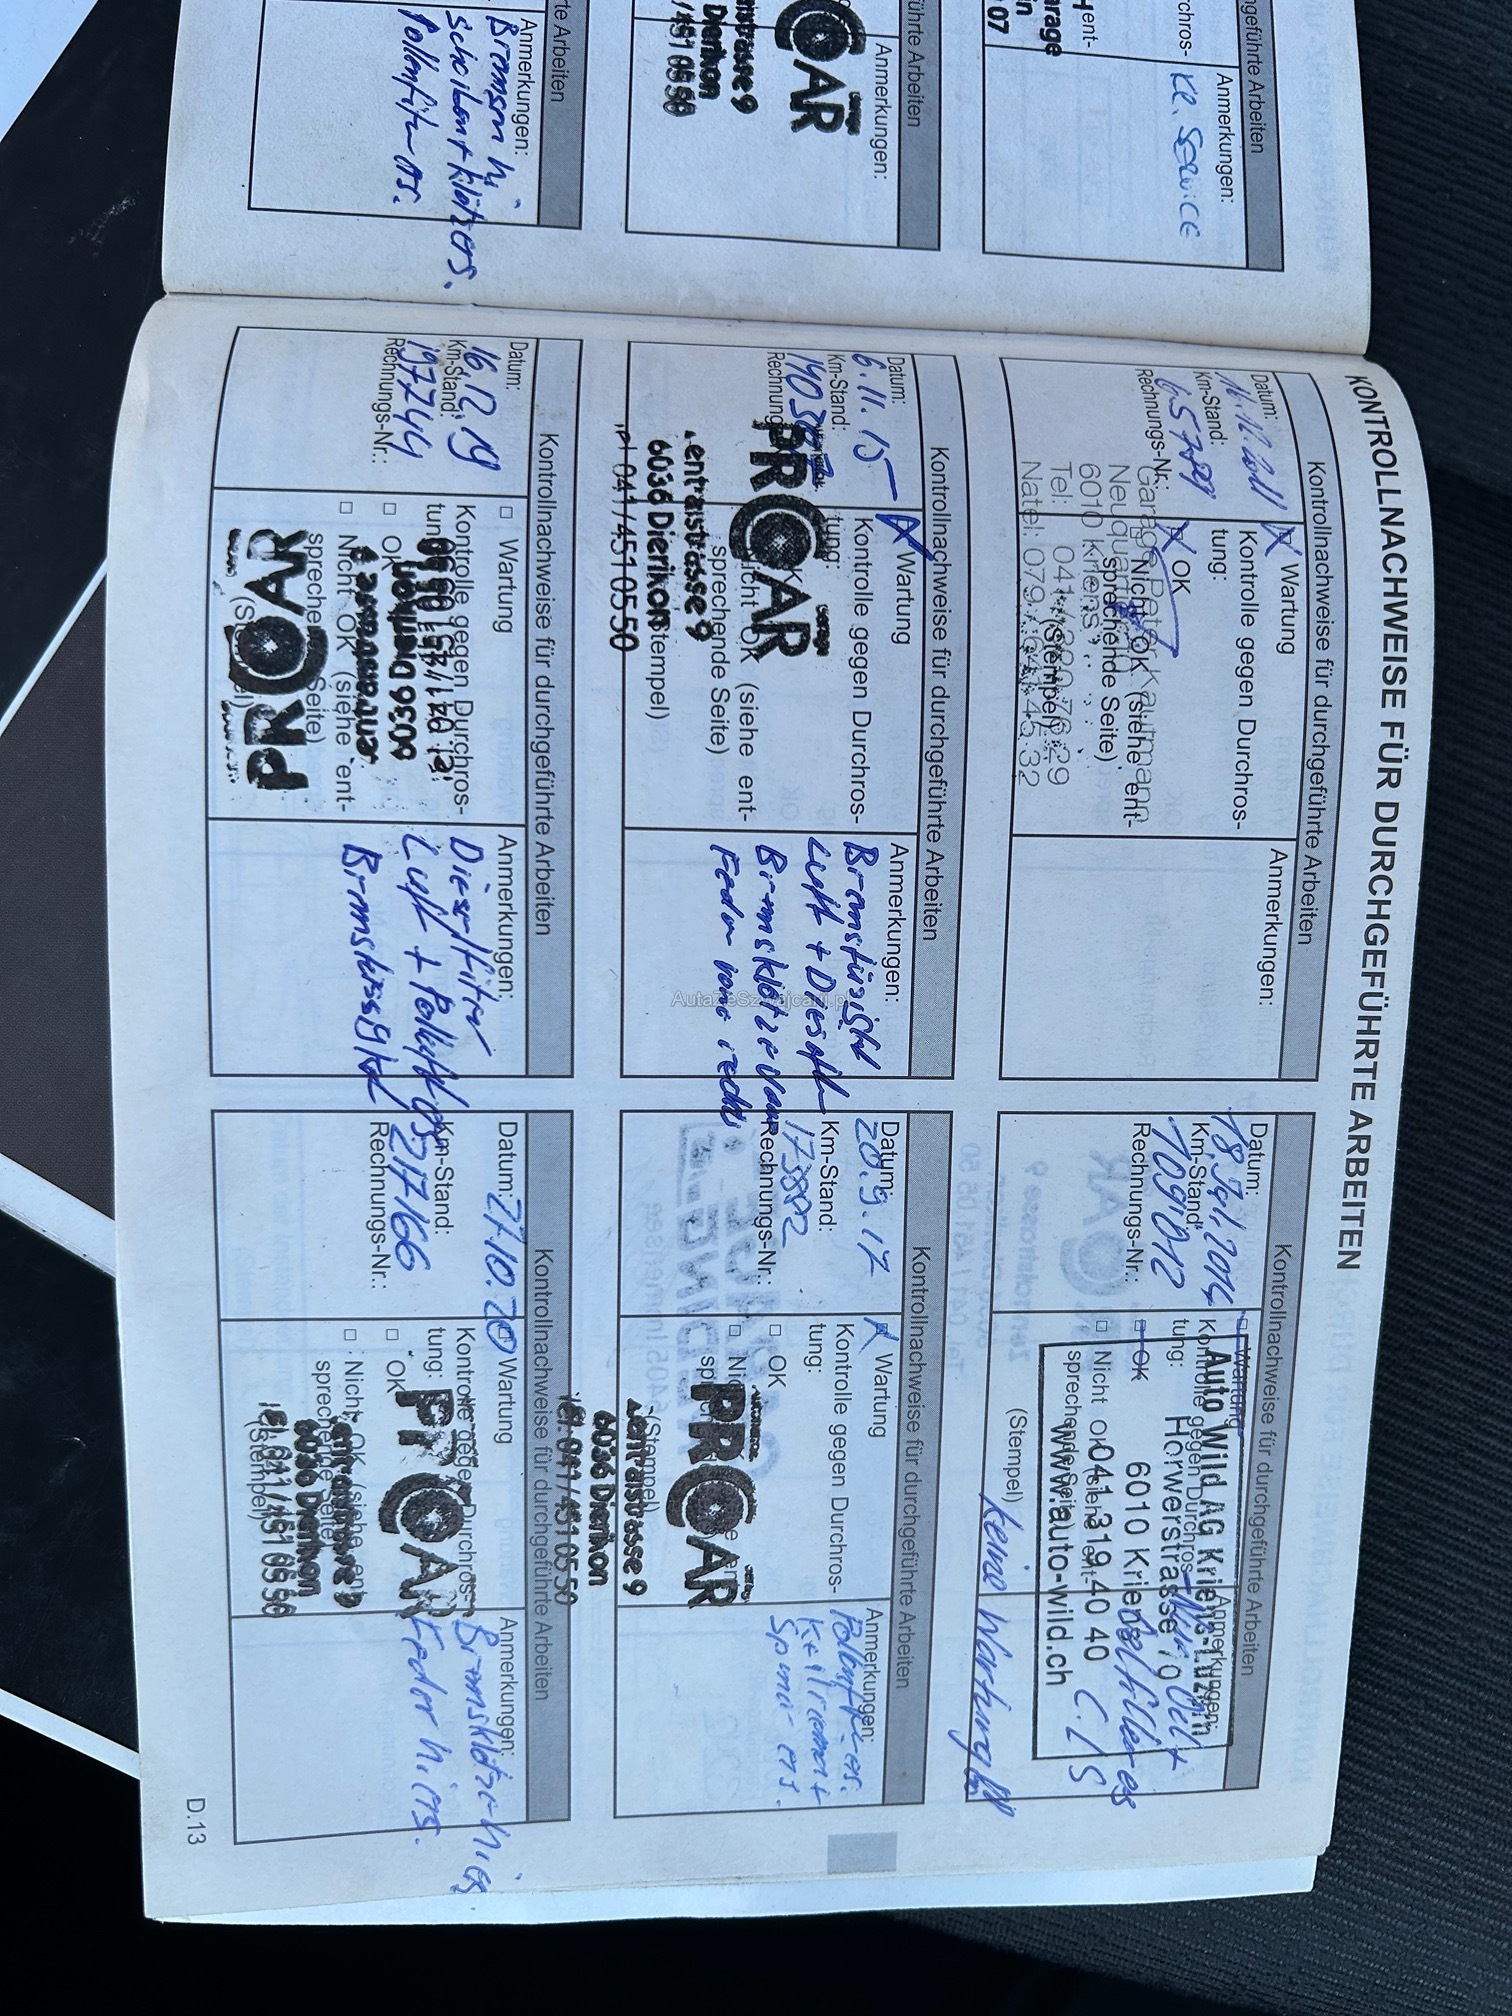 geführte Arbeiten
Anmerkungen:
kl. Service
chros-
ent-
arage
in
07
führte Arbeiten
Anmerkungen:
CAR
alstrasse 9
Dierikon
/451 05 50
te Arbeiten
Anmerkungen:
Bremsen h.
Scheiben + klötz ers.
Pollenfilter ers.
KONTROLLNACHWEISE FÜR DURCHGEFÜHRTE ARBEITEN
Kontrollnachweise für durchgeführte Arbeiten
Datum:
Km-Stand:
Rechnungs-Nr.:
X Wartung
Kontrolle gegen Durchros-
tung:
X OK
Nicht OK (siehe ent-
sprechende Seite)
(Stempel)
Garage Peter Kaufmann
6010 Kriens
Anmerkungen:
Kontrollnachweise für durchgeführte Arbeiten
Datum:
18. Juli 2014
Km-Stand:
109'012
Rechnungs-Nr.:
Wartung
Kontrolle gegen Durchros-
tung:
OK
Nicht OK (siehe ent-
sprechende Seite)
(Stempel)
Auto Wild AG Kriens-Luzern
Horwerstrasse 70
6010 Kriens
041 319 40 40
www.auto-wild.ch
Anmerkungen:
Nur Oel +
Oelfilter es
keine Wartung
Kontrollnachweise für durchgeführte Arbeiten
Datum:
6.11.15
Km-Stand:
Rechnungs
Wartung
Kontrolle gegen Durchros-
tung:
OK
Nicht OK (siehe ent-
sprechende Seite)
(Stempel)
PROCAR
Zentralstrasse 9
6036 Dierikon
Tel 041/451 05 50
Anmerkungen:
Luft + Diesel
Bremsklötze vorne
Feder vorne rechts
Kontrollnachweise für durchgeführte Arbeiten
Datum:
20.9.17
Km-Stand:
173882
Rechnungs-Nr.:
Wartung
Kontrolle gegen Durchros-
tung:
OK
(Stempel)
PROCAR
Zentralstrasse 9
6036 Dierikon
Tel. 041/451 05 50
Anmerkungen:
Pollenfilter es.
Keilriemen +
Spanner ers.
Kontrollnachweise für durchgeführte Arbeiten
Datum:
16.12.19
Km-Stand:
197744
Rechnungs-Nr.:
Wartung
Kontrolle gegen Durchros-
tung:
OK
Nicht OK (siehe ent-
sprechende Seite)
(Stempel)
PROCAR
Zentralstrasse 9
6036 Dierikon
Tel 041/451 05 50
Anmerkungen:
Dieselfilter
Luft + Pollenfilter es.
Bremsflüssigkeit
Kontrollnachweise für durchgeführte Arbeiten
Datum:
27.10.20
Km-Stand:
217166
Rechnungs-Nr.:
Wartung
Kontrolle gegen Durchros-
tung:
OK
Nicht OK (siehe ent-
sprechende Seite)
(Stempel)
PROCAR
Zentralstrasse 9
6036 Dierikon
Tel. 041/451 05 50
Anmerkungen:
Bremsklötze h. ers
Feder h. ers.
D.13
AutaZeSzwajcarii.pl